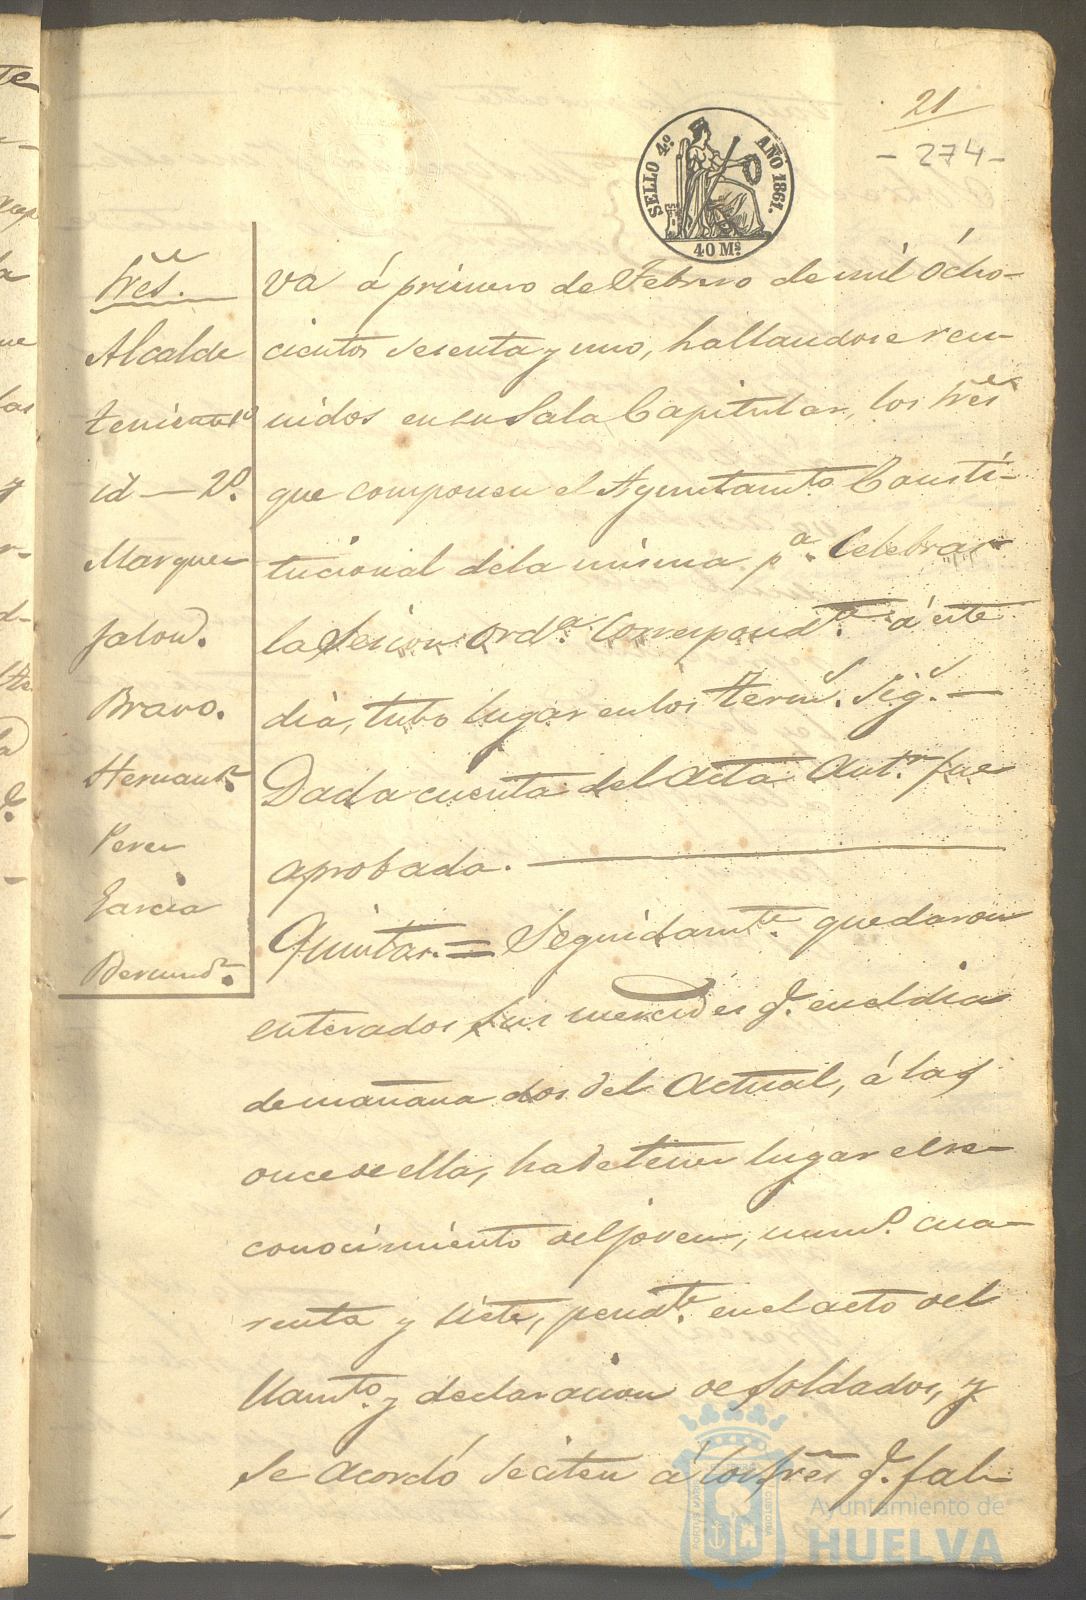 21
- 274 -
SELLO 4º AÑO 1861.
40 Ms.
Sres.
Alcalde
teniente 1º
id — 2º.
Marquez
Jalon.
Bravo.
Hernandz.
Perez
Garcia
Bermudz.
va á primero de Febrero de mil ócho-
cientos sesenta y uno, hallandose reu-
nidos en su Sala Capitular, los Sres
que componen el Ayuntamto. Consti-
tucional dela misma pa. Celebrar
la Sesion ordª. Correspondte. á este
dia, tubo lugar enlos termS. Sigs. —
Dada cuenta del acta antr. fue
aprobada.
Quintas. = Seguidamte. quedaron
enterados sus mercedes q. enel dia
demañana dos del actual, á las
oncedeella, hadetener lugar elre-
conocimiento deljoven, numo. cua-
renta y siete, pendte. enelacto del
llamto. y declaracion de soldados, y
se acordó seciten á los Sres q. fal-
Ayuntamiento de
HUELVA